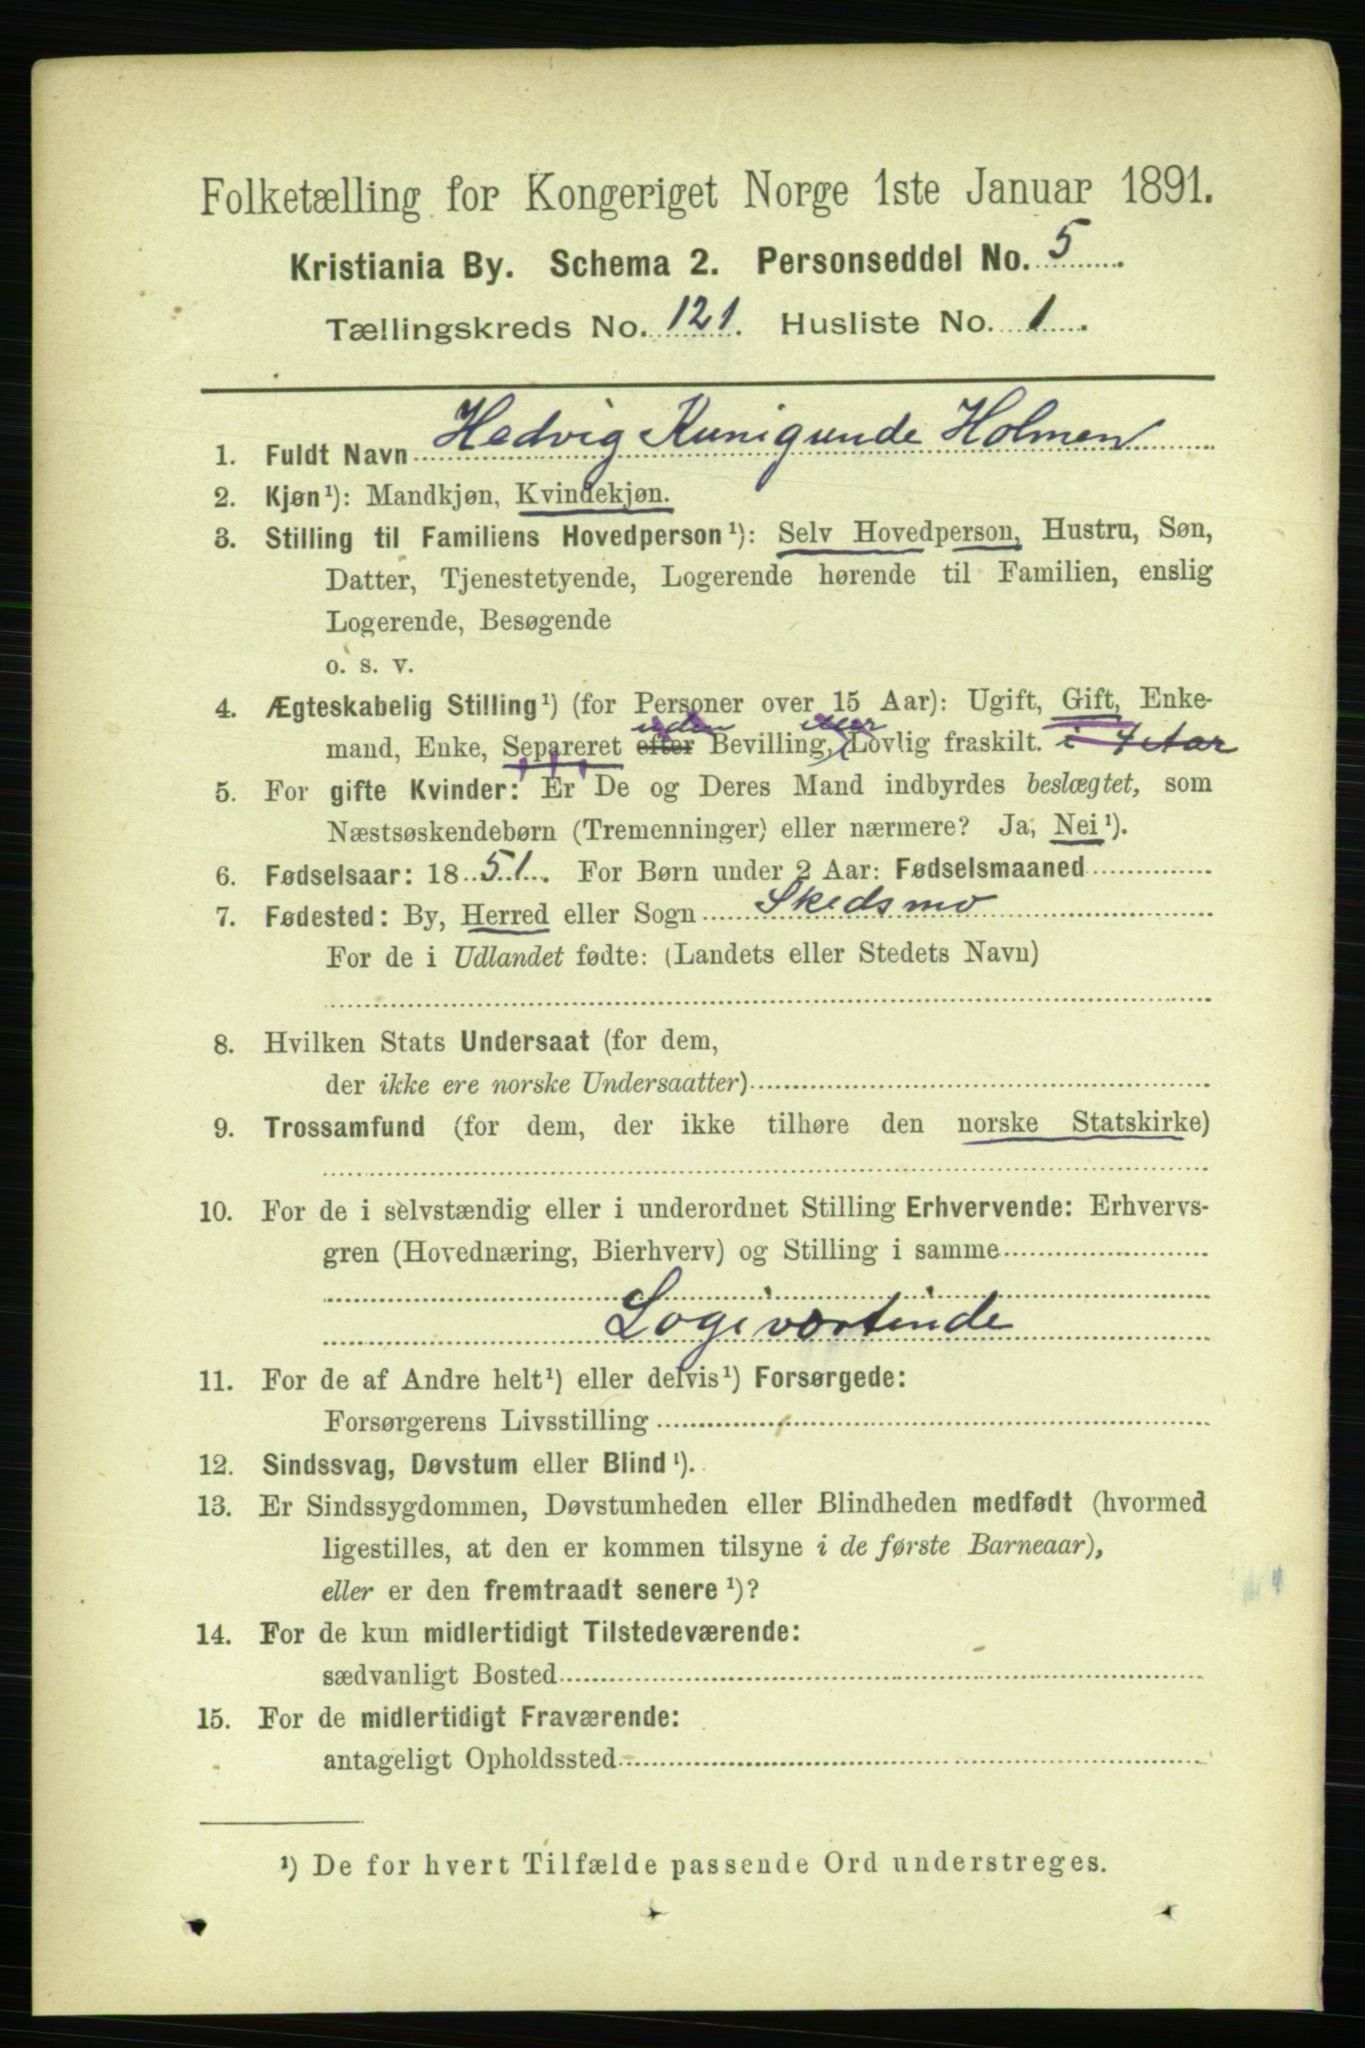 Folketælling for Kongeriget Norge 1ste Januar 1891.
Kristiania By. Schema 2. Personseddel No. 5.
Tællingskreds No. 121. Husliste No. 1.
1. Fuldt Navn Hedvig Kunigunde Holmen
2. Kjøn¹): Mandkjøn, Kvindekjøn.
3. Stilling til Familiens Hovedperson¹): Selv Hovedperson, Hustru, Søn,
Datter, Tjenestetyende, Logerende hørende til Familien, enslig
Logerende, Besøgende
o. s. v.
4. Ægteskabelig Stilling¹) (for Personer over 15 Aar): Ugift, Gift, Enke-
uden
mand, Enke, Separeret efter Bevilling, Lovlig fraskilt. i 4 Aar
5. For gifte Kvinder: Er De og Deres Mand indbyrdes beslægtet, som
Næstsøskendebørn (Tremenninger) eller nærmere? Ja, Nei¹).
6. Fødselsaar: 1851. For Børn under 2 Aar: Fødselsmaaned
7. Fødested: By, Herred eller Sogn Skedsmo
For de i Udlandet fødte: (Landets eller Stedets Navn)
8. Hvilken Stats Undersaat (for dem,
der ikke ere norske Undersaatter)
9. Trossamfund (for dem, der ikke tilhøre den norske Statskirke)
10. For de i selvstændig eller i underordnet Stilling Erhvervende: Erhvervs-
gren (Hovednæring, Bierhverv) og Stilling i samme
Logivertinde
11. For de af Andre helt¹) eller delvis¹) Forsørgede:
Forsørgerens Livsstilling
12. Sindssvag, Døvstum eller Blind¹).
13. Er Sindssygdommen, Døvstumheden eller Blindheden medfødt (hvormed
ligestilles, at den er kommen tilsyne i de første Barneaar),
eller er den fremtraadt senere¹)?
14. For de kun midlertidigt Tilstedeværende:
sædvanligt Bosted
15. For de midlertidigt Fraværende:
antageligt Opholdssted
¹) De for hvert Tilfælde passende Ord understreges.